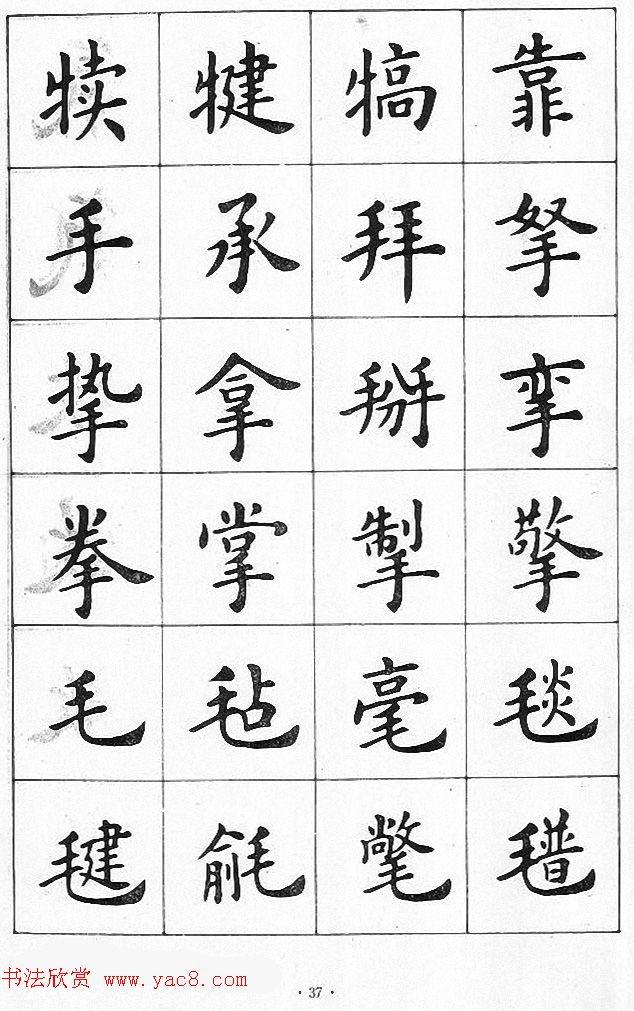 犊 犍 犒 靠
手 承 拜 拏
挚 拿 掰 挛
拳 掌 掣 擎
毛 毡 毫 毯
毽 毹 氅 氆
书法欣赏 www.yac8.com
· 37 ·